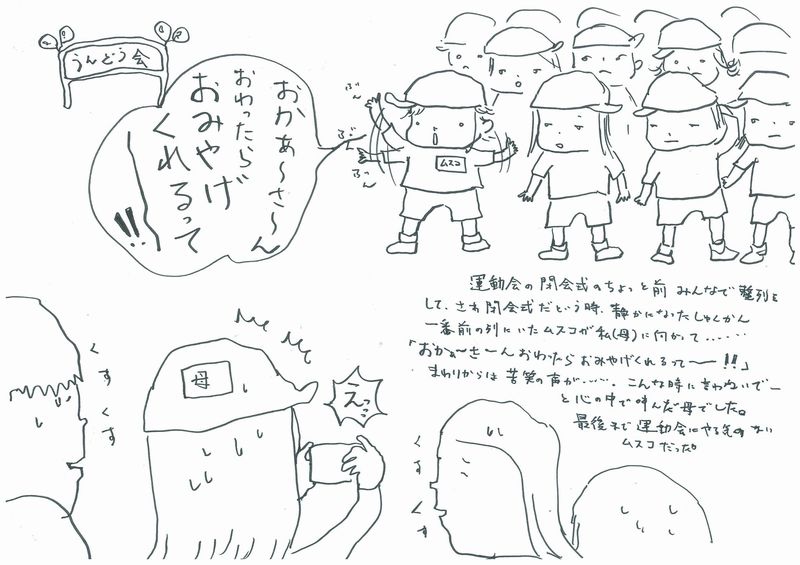 うんどう会
おかぁ〜さ〜ん
おわったら
おみやげ
くれるって
ー!!
ぶん
ぶん
ぶん
ムスコ
運動会の閉会式のちょっと前 みんなで整列を
して、さあ閉会式だという時、静かになったしゅんかん
一番前の列にいたムスコが私(母)に向かって……
「おかぁ〜さ〜んおわったらおみやげくれるって〜ー!!」
まわりからは苦笑の声が……。こんな時にきかないでー
と心の中で叫んだ母でした。
最後まで運動会にやる気のない
ムスコだった。
くすくす
母
えっ
くすくす